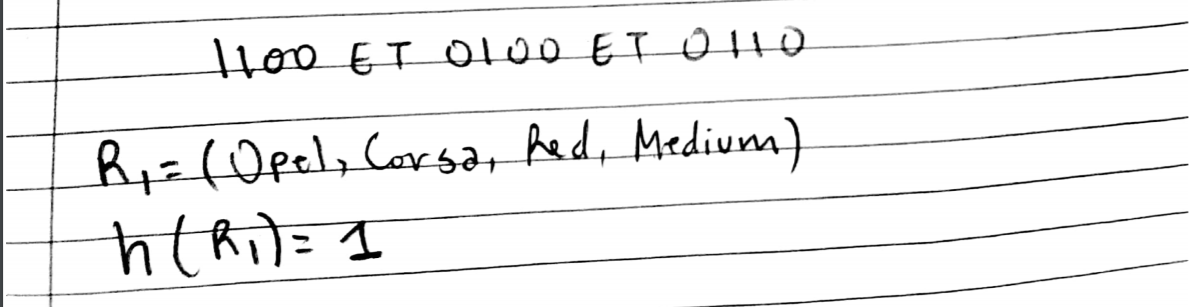 1100 ET 0100 ET 0110
R₁=(Opel, Corsa, Red, Medium)
h(R₁)= 1